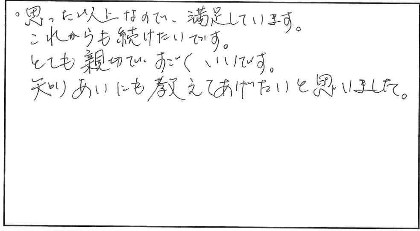 。思った以上なので、満足しています。
これからも続けたいです。
とても親切で、すごくいいです。
知りあいにも教えてあげたいと思いました。